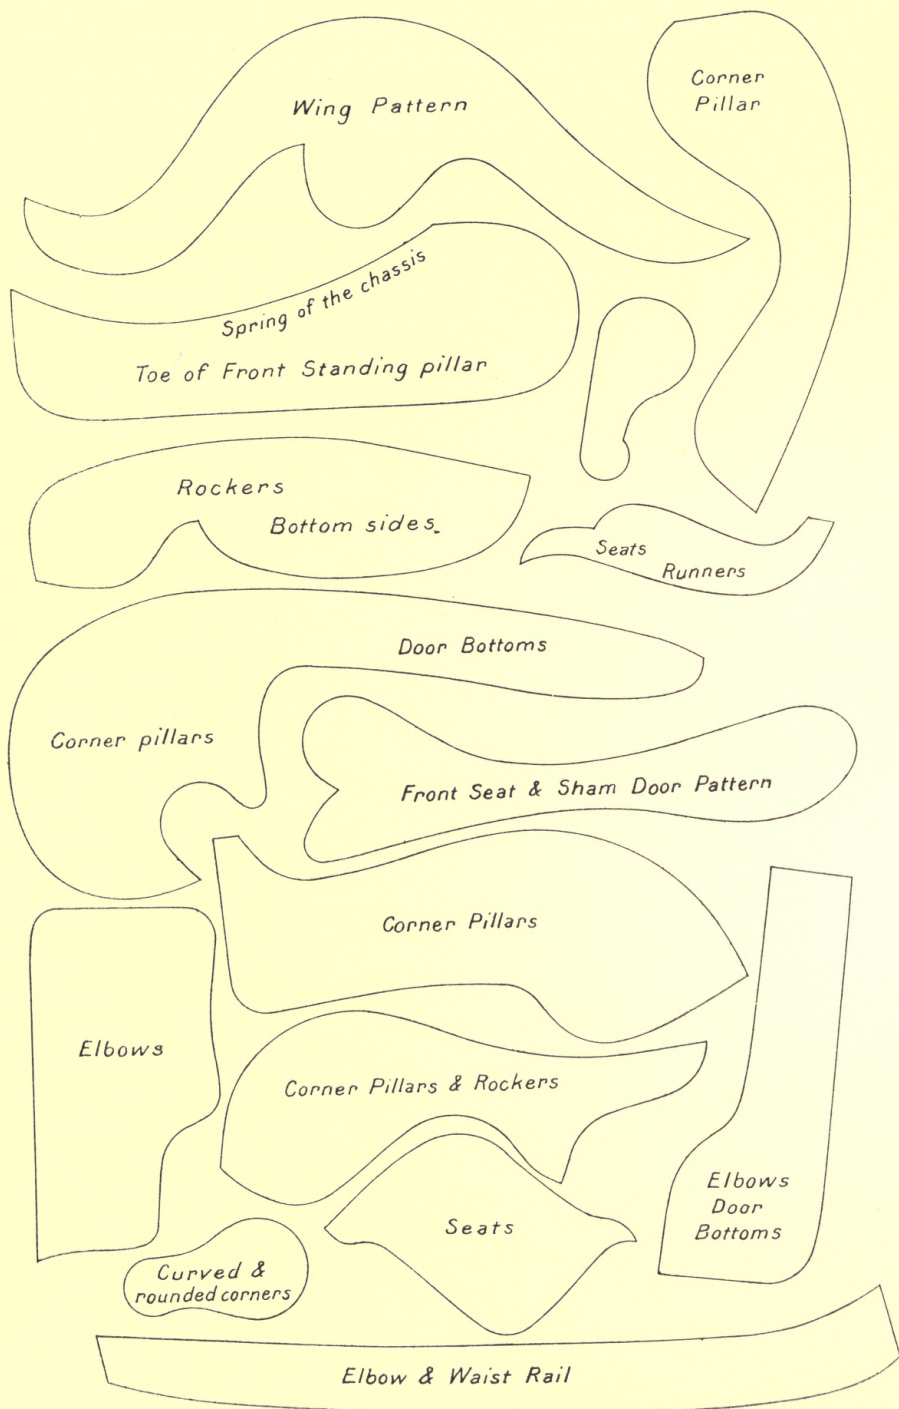 Wing Pattern
Corner
Pillar
Spring of the chassis
Toe of Front Standing pillar
Rockers
Bottom sides.
Seats
Runners
Door Bottoms
Corner pillars
Front Seat & Sham Door Pattern
Corner Pillars
Elbows
Corner Pillars & Rockers
Elbows
Door
Bottoms
Seats
Curved &
rounded corners
Elbow & Waist Rail